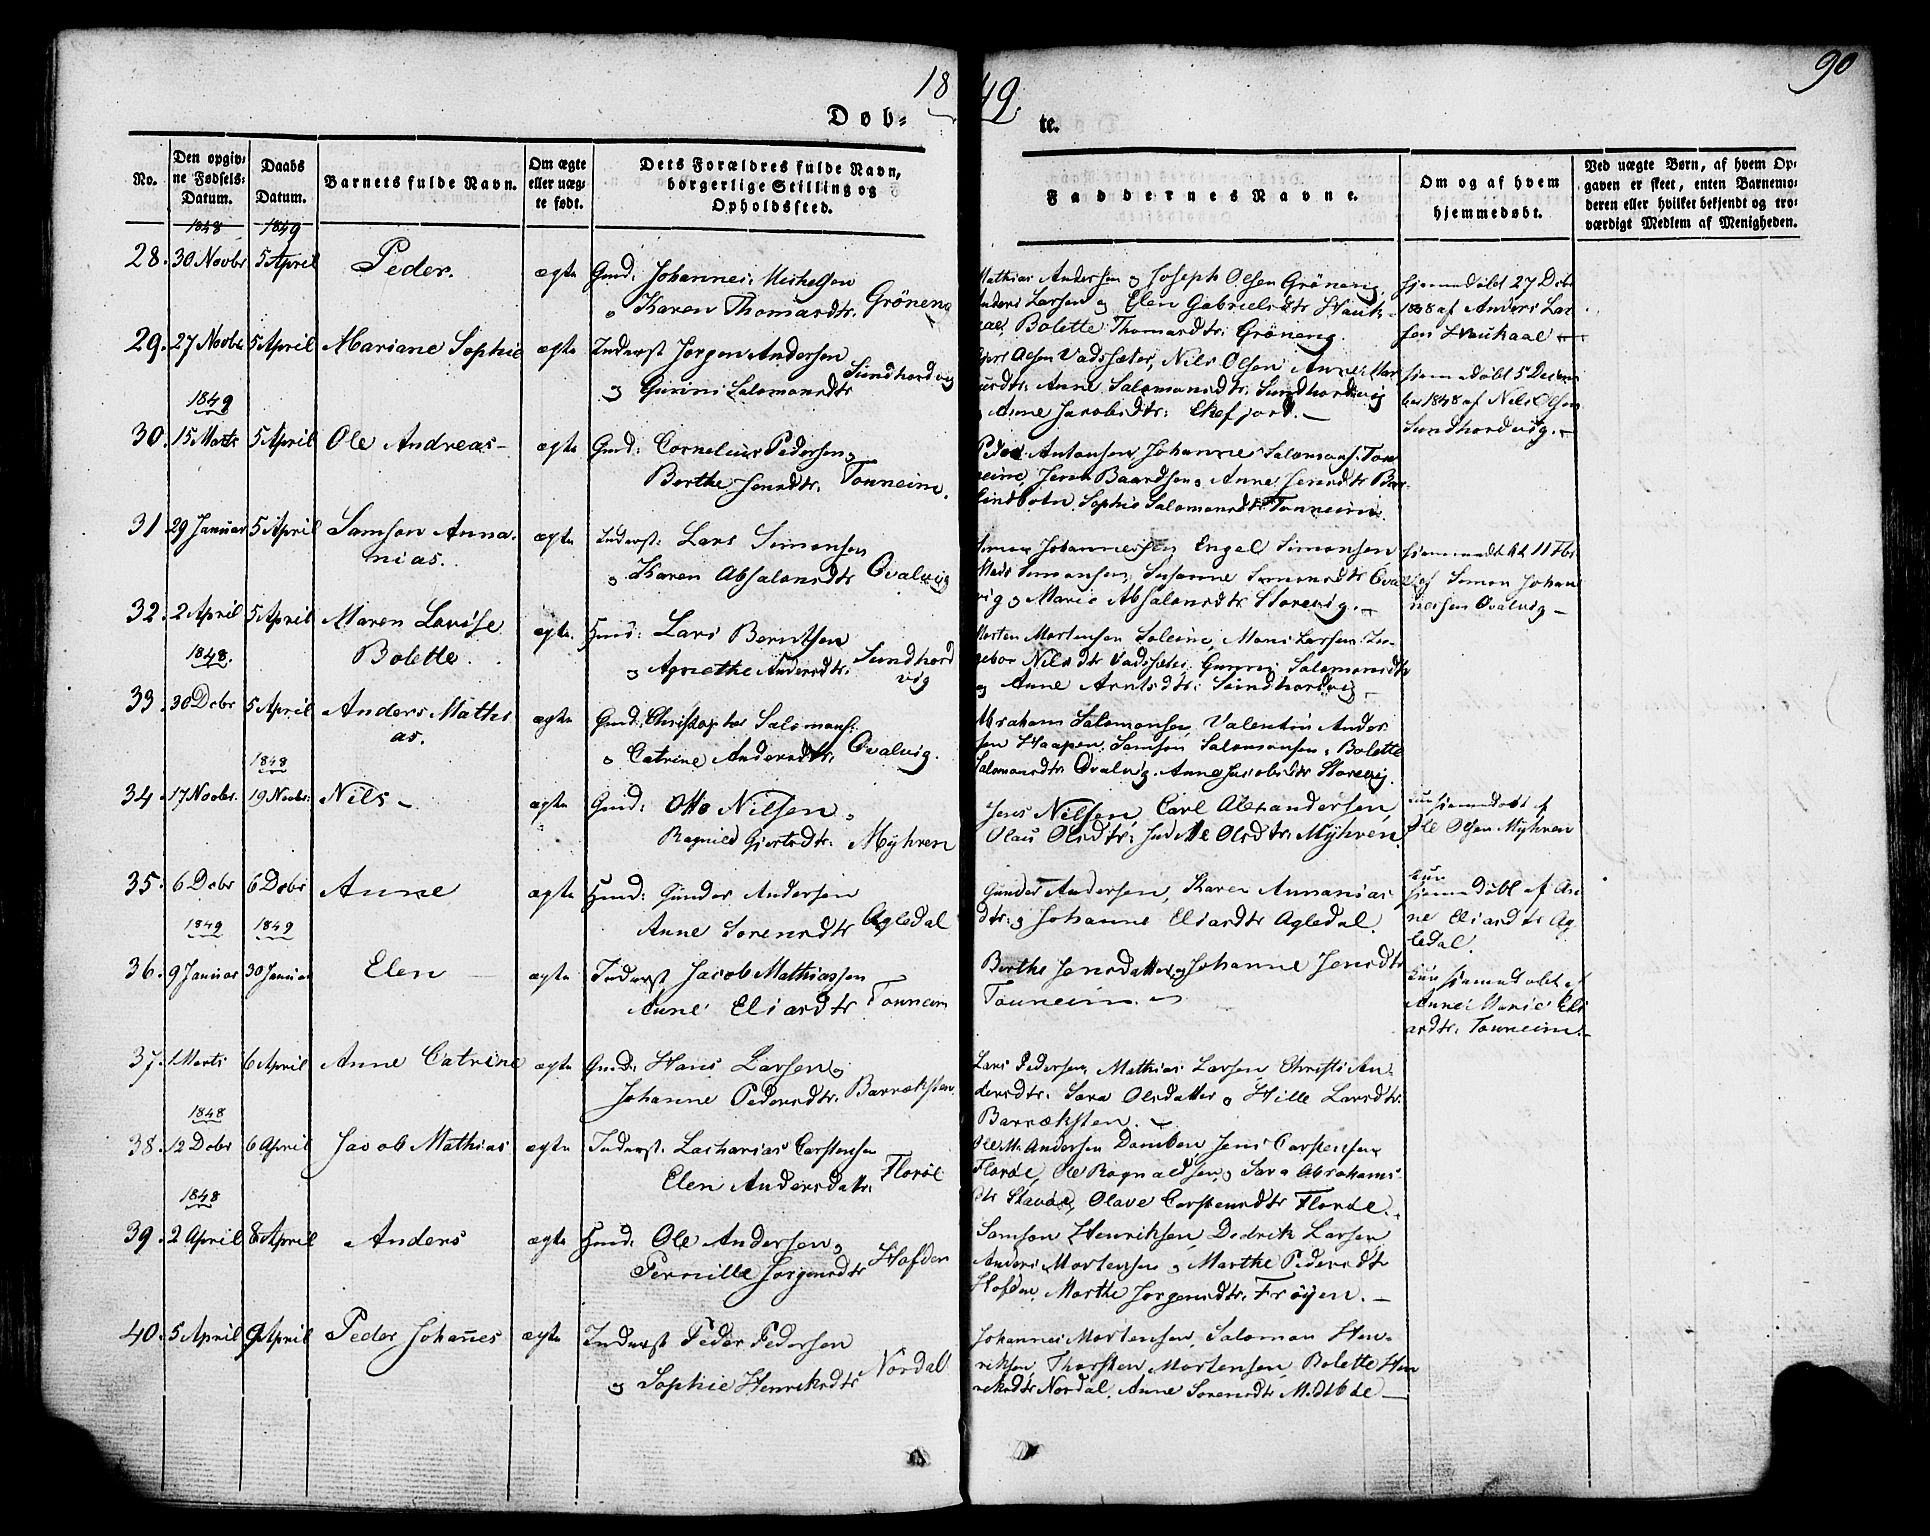 1849
90
Døb-
te.
No.
Den opgiv-
ne Fødsels-
Datum.
Daabs
Datum.
Barnets fulde Navn.
Om ægte
eller uæg-
te født.
Dets Forældres fulde Navn,
borgerlige Stilling og
Opholdssted.
Faddernes Navne.
Om og af hvem
hjemmedøbt.
Ved uægte Børn, af hvem Op-
gaven er skeet, enten Barnemo-
deren eller hvilket bekjendt og tro-
værdigt Medlem af Menigheden.
1848 1849
28. 30 Novbr 5 April Peder. ægte Gmd: Johannes Michelsen
o Karen Thomasdtr. Gröneng
Mathias Andersen og Joseph Olsen Gröneng
Anders Larsen og Elen Gabrielsdtr Hauk-
aae, Bolette Thomasdtr: Gröneng.
hjemmedøbt 27 Debr
1848 af Anders Lar-
sen Haukaae
29. 27 Novbr 5 April Mariane Sophie ægte Inderst Jörgen Andersen
og Gurine Salomonsdtr Sundhordvig
Olsen Vadsæter, Nils Olsen Anne Mar-
Anne Salomonsdtr: Sundhordvig
og Anne Jacobsdtr: Ekefjord.
hjemmedøbt 5 Decem
ber 1848 af Nils Olsen
Sundhordvig.
1849
30. 15 Marts 5 April Ole Andreas ægte Gmd: Cornelius Pedersen o
Berthe Jensdtr. Tonneim.
Peder Antonsen Johanne Salomons: Ton-
neim, Jens Baardsen o Anne Jensdtr
Sophie Salomonsdtr Tonneim.
31. 29 Januar 5 April Samson Anna-
nias. ægte Inderst: Lars Simonsen
o Karen Absalonsdtr Qvalvig
Simon Johannessen Engel Simonsen,
Mads Simonsen, Susanne Simonsdtr Qval-
vig o Marie Absalonsdtr Storevig.
hjemmedøbt 11 Fbr
af Simon Johan
nessen Qvalvig
32. 2 April 5 April Maren Lovise
Bolette. ægte Gmd: Lars Berntsen
o Agnethe Andersdtr. Sundhord
vig
Morten Mortensen Soleim, Mons Larsen In-
gebor Nilsdtr Vadsæter, Gunni Salomonsdtr
og Anne Arntsdtr: Sundhordvig
1848.
33. 30 Debr 5 April Anders Mathi
as. ægte Gmd: Christopher Salomons:
o Catrine Andersdtr. Qvalvig.
Abraham Salomonsen, Valentin Ander
sen Haapen, Samson Salomonsen, Bolette
Salomonsdtr Qvalvig. Anne Jacobsdtr Storevig.
1848
34. 17 Novbr. 19 Novbr: Nils ægte Gmd: Otto Nilsen o
Ragnild Giertsdtr. Myhren
Jens Nilsen, Carl Alexandersen,
Olaus Olsdtr: Olsdtr. Myhren
kun hjemmedøbt af
Ole Olsen Myhren
35. 6 Debr 6 Debr Anne ægte Gmd: Gunder Andersen
Anne Sorensdtr Agledal
Gunder Andersen, Karen Annanias-
dtr: o Johanne Eliasdtr Agledal.
kun
hjemmedøbt af An-
ne Eliasdtr Ag-
ledal.
1849 1849
36. 9 Januar 30 Januar Elen ægte Inderst Jacob Mathiassen
Anne Eliasdtr Tonneim
Berthe Jensdatter o Johanne Jensdtr
Tonneim.
kun hjemmedøbt af
Anne Marie Eli
asdtr: Tonneim.
37. 1 Marts 6 April Anne Catrine ægte Gmd: Hans Larsen o
Johanne Pedersdtr. Barræksten.
Lars Pedersen, Mathias Larsen, Christi An-
dersdtr. Sara Olsdatter o Hille Larsdtr.
Barræksten.
1848
38. 12 Debr 6 April Jacob Mathias ægte Inderst: Zacharias Carstensen
Elen Andersdattr. Floröe
Ole M. Andersen Damben, Jens Carstensen
Floröe, Ole Ragnaldsen, o Sara Abrahams-
dtr Stavöe, Olave Carstensdtr Floröe.
1848
39. 2 April 8 April Anders ægte Gmd: Ole Andersen o
Pernille Jörgensdtr Hofden
Samson Henriksen, Dedrik Larsen
Anders Mortensen o Marthe Pedersdtr
Hofden, Marthe Jörgensdtr. Fröyen.
40. 5 April 9 April Peder Johañes ægte Inderst Peder Pedersen
og Sophie Henriksdtr Nordal
Johannes Mortensen, Salomon Hen-
riksen, Thorsten Mortensen, Bolette Hen
riksdtr Nordal, Anne Sorensdtr Midtböe